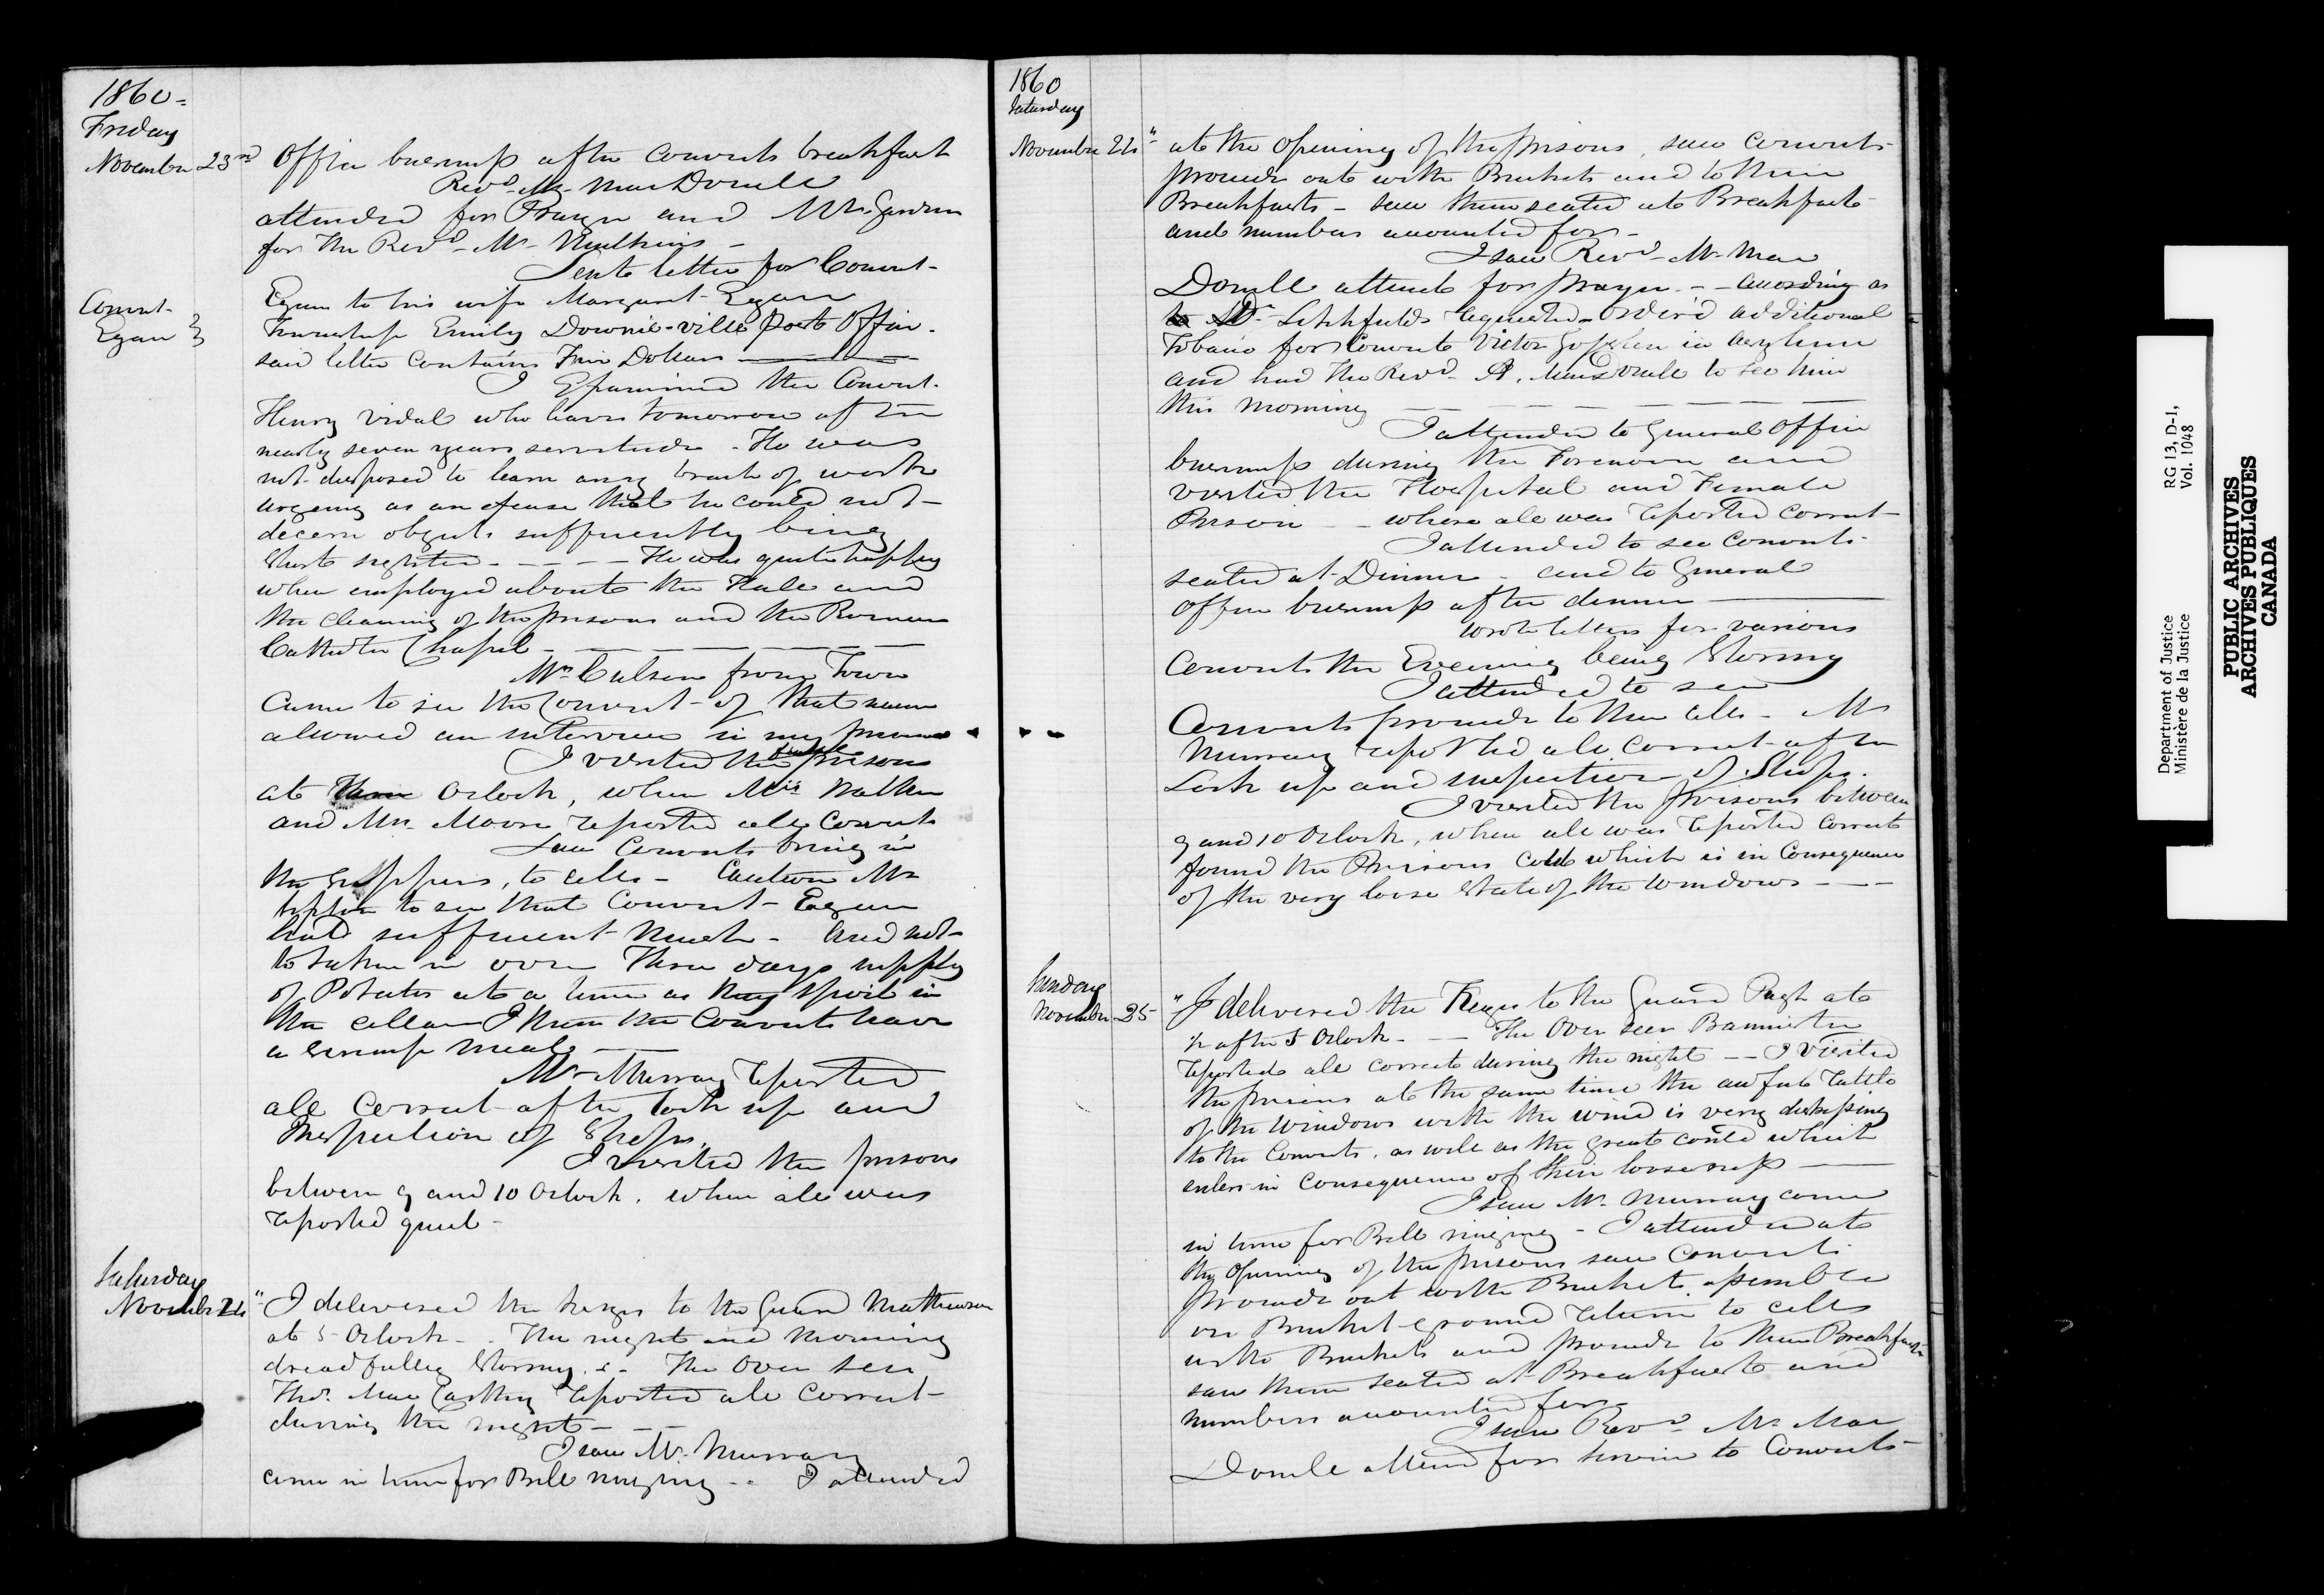 1860 =
Friday
November 23rd Office business after convicts breakfast
Revd Mr MacDonell
attended for Prayer and Mr
for the Revd Mr Mulkins -
Sent letter for Convict
Convict
Egan
Egan to his wife Margaret Egan
Township Emily Downie-ville Post Office.
said letter contains Dollars
I Examined the Convict
Henry Vidal who leaves tomorrow after
nearly seven years servitude - He was
not disposed to learn any branch of work
urging as an excuse that he could not
decern objects sufficiently being
Short sighted - - - - He was quite happy
when employed about the Hall and
the cleaning of the prisons and the Roman
Catholic Chapel
Mr from Town
came to see the Convict of that name
allowed an interview in my presence
I visited the female prison
at Oclock, when Miss
and Mrs Moore reported all correct
Saw Convicts bring in
the Suppers, to cells - Caution Mr
to see that Convict Egan
had sufficient - And not
to take in over Three days supply
of Potatoes at a time as they spoil in
the cellar I the Convicts have
a meal
Mr Murray reported
all correct after lock up and
Inspection of Shops.
I visited the prisons
between 9 and 10 Oclock, when all was
reported quiet -
Saturday
November 24" I delivered the keys to the Guard Mathewson
at 5 Oclock - The night and morning
dreadfully Stormy. - The Over seer
Thos. MacCarthy reported all correct
during the night - - -
I saw Mr. Murray
come in time for Bell ringing - - I attended
1860
Saturday
November 24" at the Opening of the prisons, saw convicts
proceed out with Buckets and to their
Breakfasts - saw them seated at Breakfast
and numbers accounted for -
I saw Revd Mr Mac
Donell attend for prayer - - according as
Dr Litchfields requested - Order'd additional
Tobacco for Convict Victor in Asylum
and had the Revd A. MacDonell to see him
this morning
I attended to General Office
business during the Forenoon and
visited the Hospital and Female
Prison - - where all was reported correct
I attended to see Convicts
seated at Dinner - and to General
Office business after dinner
Wrote letters for various
Convicts the Evening being Stormy
I attended to see
Convicts proceed to their cells - Mr
Murray reported all correct after
Lock up and inspection of Shops.
I visited the Prisons between
9 and 10 Oclock, when all was reported correct
found the Prisons Cold which is in Consequence
of the very loose State of the windows - - -
Sunday
November 25" I delivered the Keys to the Guard Pugh at
1/2 after 5 Oclock - - - The Over seer Bannister
reported all correct during the night - - I visited
the prisons at the same time the awful rattle
of the windows with the wind is very distressing
to the Convicts, as well as the great could which
enters in Consequence of their looseness
I saw Mr. Murray come
in time for Bell ringing - I attended at
the Opening of the prisons saw convicts
proceed out with Buckets assemble
on Bucket-ground return to cells
with Buckets and proceed to their Breakfasts
saw them seated at Breakfast and
numbers accounted for -
I saw Revd Mr Mac
Donell attend for service to Convicts
Department of Justice
Ministère de la Justice
RG 13, D-1,
Vol. 1048
PUBLIC ARCHIVES
ARCHIVES PUBLIQUES
CANADA